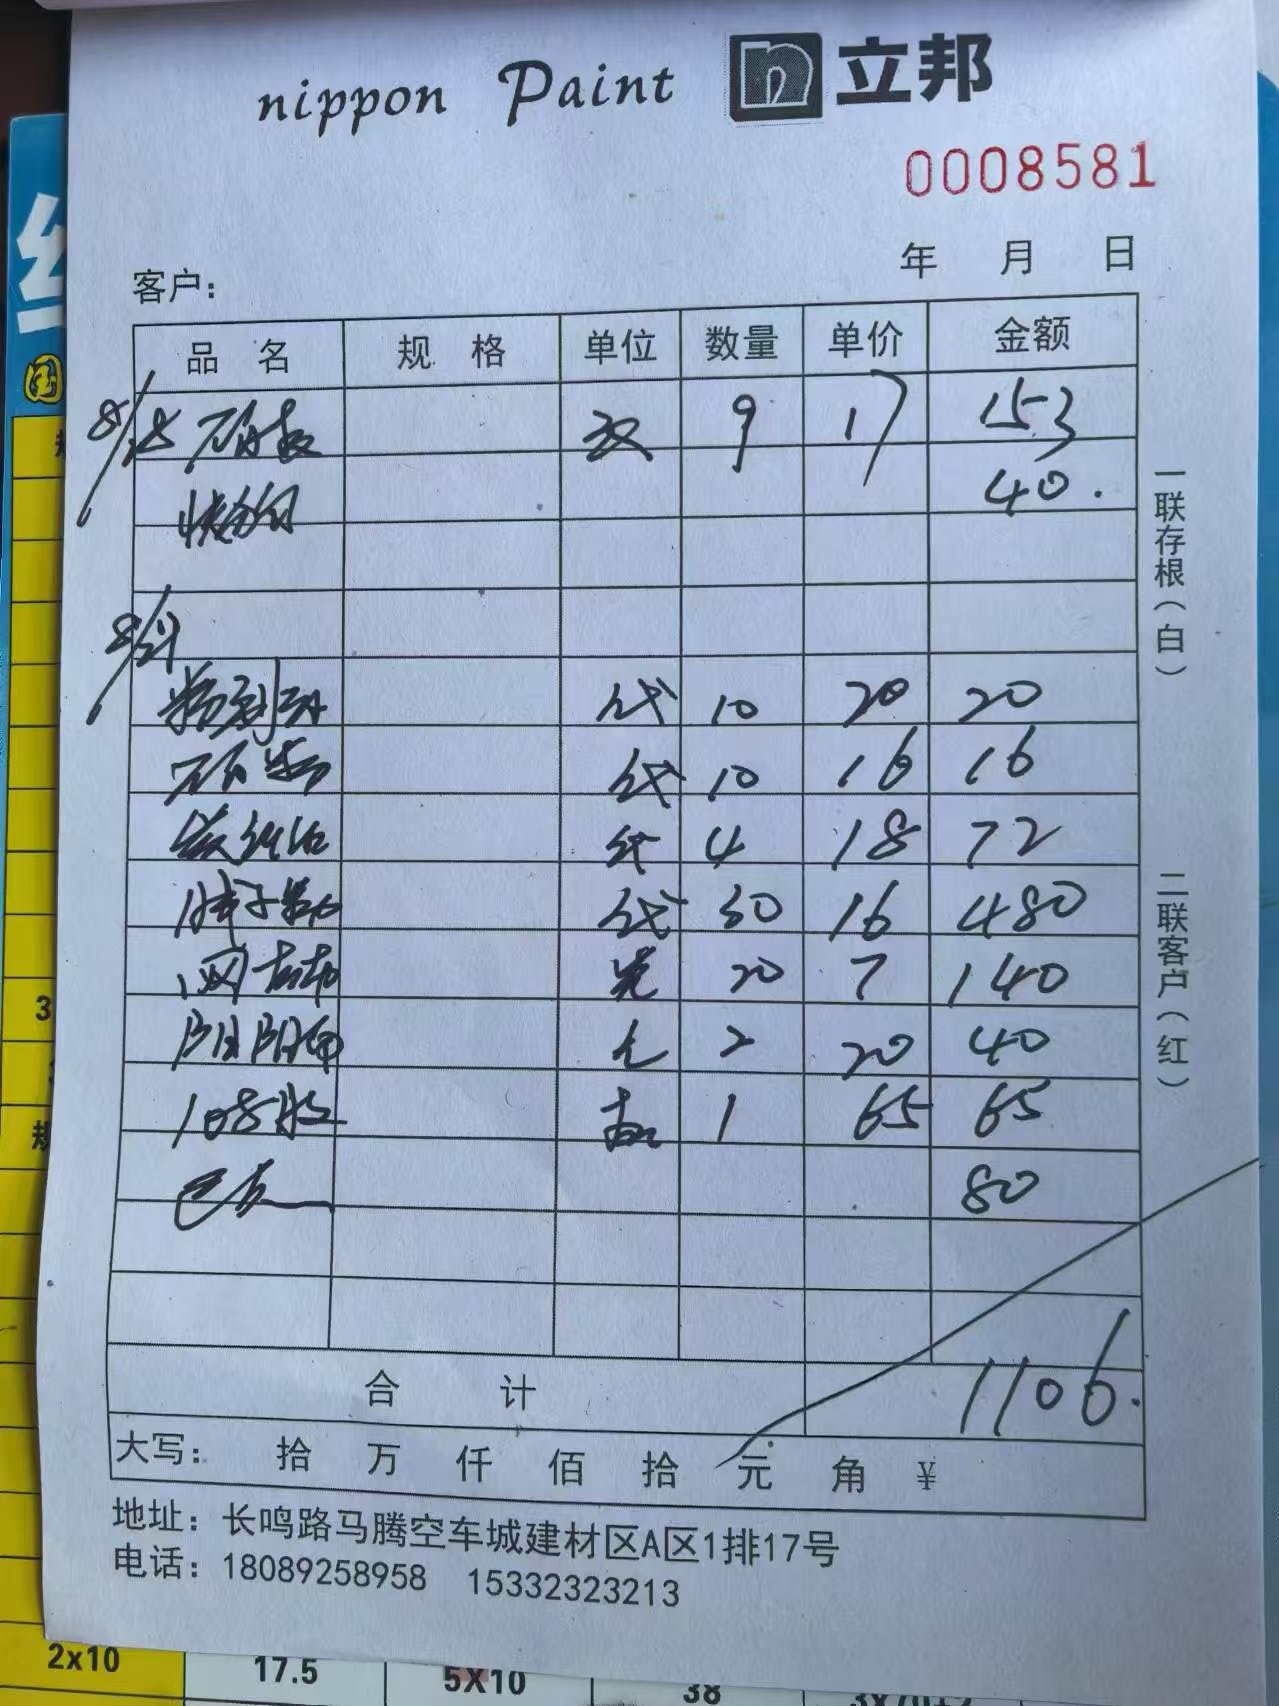 nippon Paint 立邦
0008581
年 月 日
客户：
品 名 规 格 单位 数量 单价 金额
8/18 石膏板 9 17 153
40.
8/21
粉刷石膏 代 10 20 20
石膏 代 10 16 16
代 4 18 72
腻子粉 代 30 16 480
网布 卷 20 7 140
阴阳角 2 20 40
108胶 1 65 65
80
合 计 1106.
大写： 拾 万 仟 佰 拾 元 角 ¥
地址：长鸣路马腾空车城建材区A区1排17号
电话：18089258958 15332323213
一联存根（白）
二联客户（红）
2x10 17.5 5X10 38